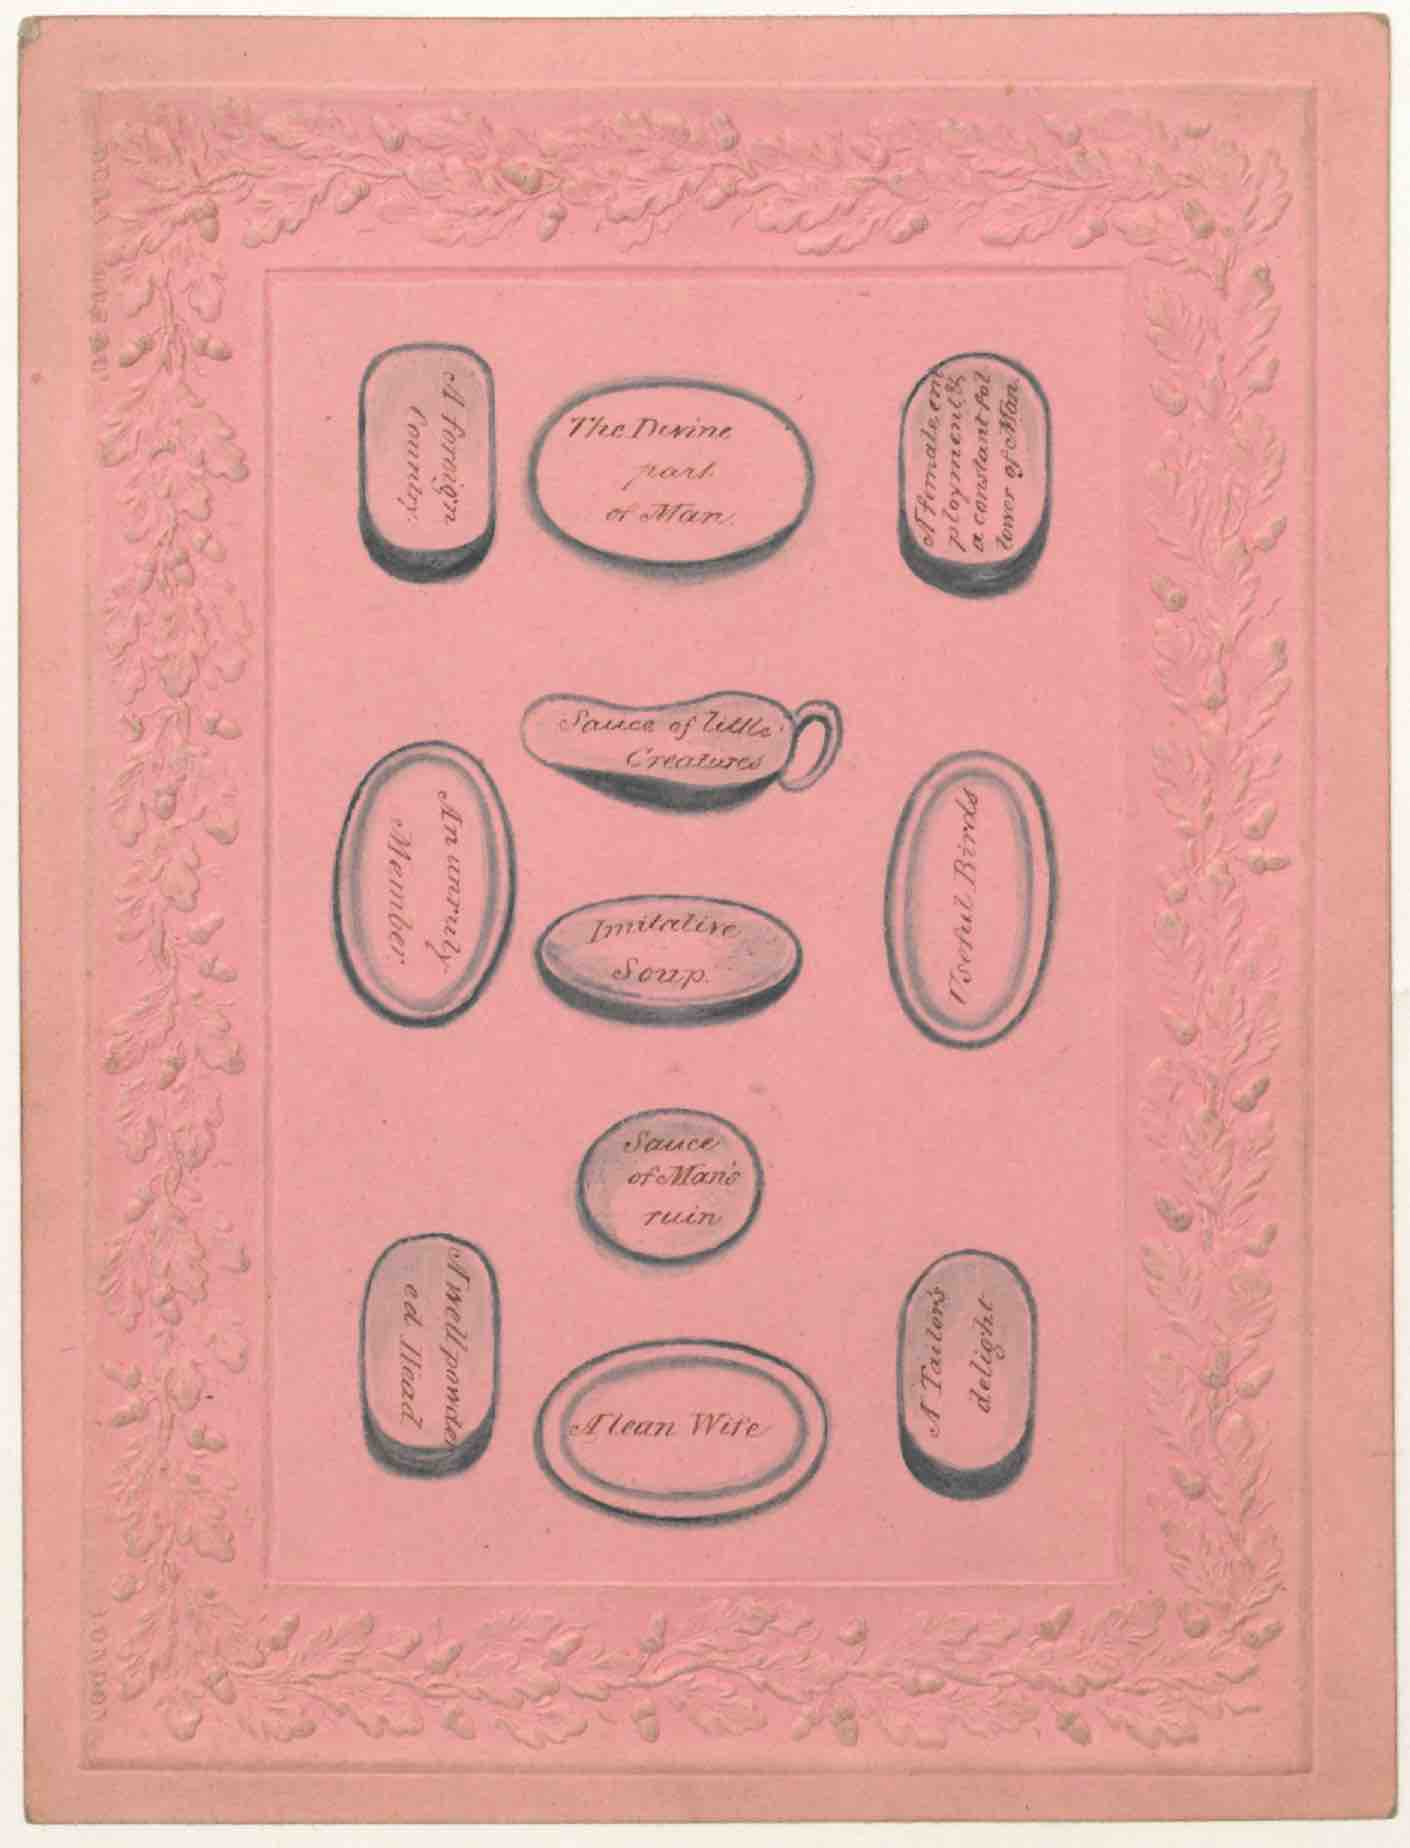 A foreign
Country.
The Devine
part
of Man.
A female em
ployment &
a constant fol
lower of Man.
Sauce of little
Creatures
An unruly
Member.
Useful Birds
Imitative
Soup.
Sauce
of Man's
ruin
A well powder
ed Head
A lean Wife
A Tailor's
delight
LONDON